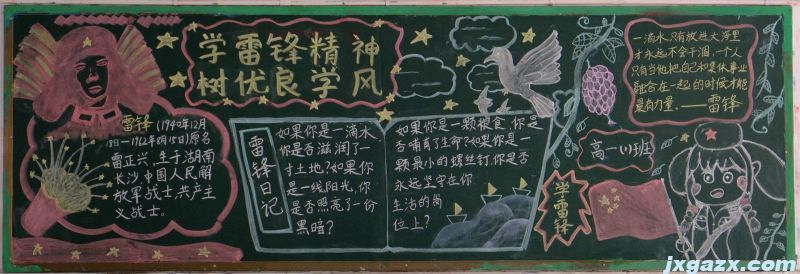 学雷锋精神
树优良学风
雷锋(1940年12月
18日-1962年8月15日)原名
雷正兴,生于湖南
长沙,中国人民解
放军战士共产主
义战士。
雷锋日记
如果你是一滴水
你是否滋润了一
寸土地?如果你
是一线阳光,你
是否照亮了一份
黑暗?
如果你是一颗粮食,你是
否哺育了生命?如果你是一
颗最小的螺丝钉,你是否
永远坚守在你
生活的岗
位上?
一滴水只有放进大海里
才永远不会干涸,一个人
只有当他把自己和集体事业
融合在一起的时候才能
最有力量.——雷锋
高一(1)班
学雷锋
jxgazx.com